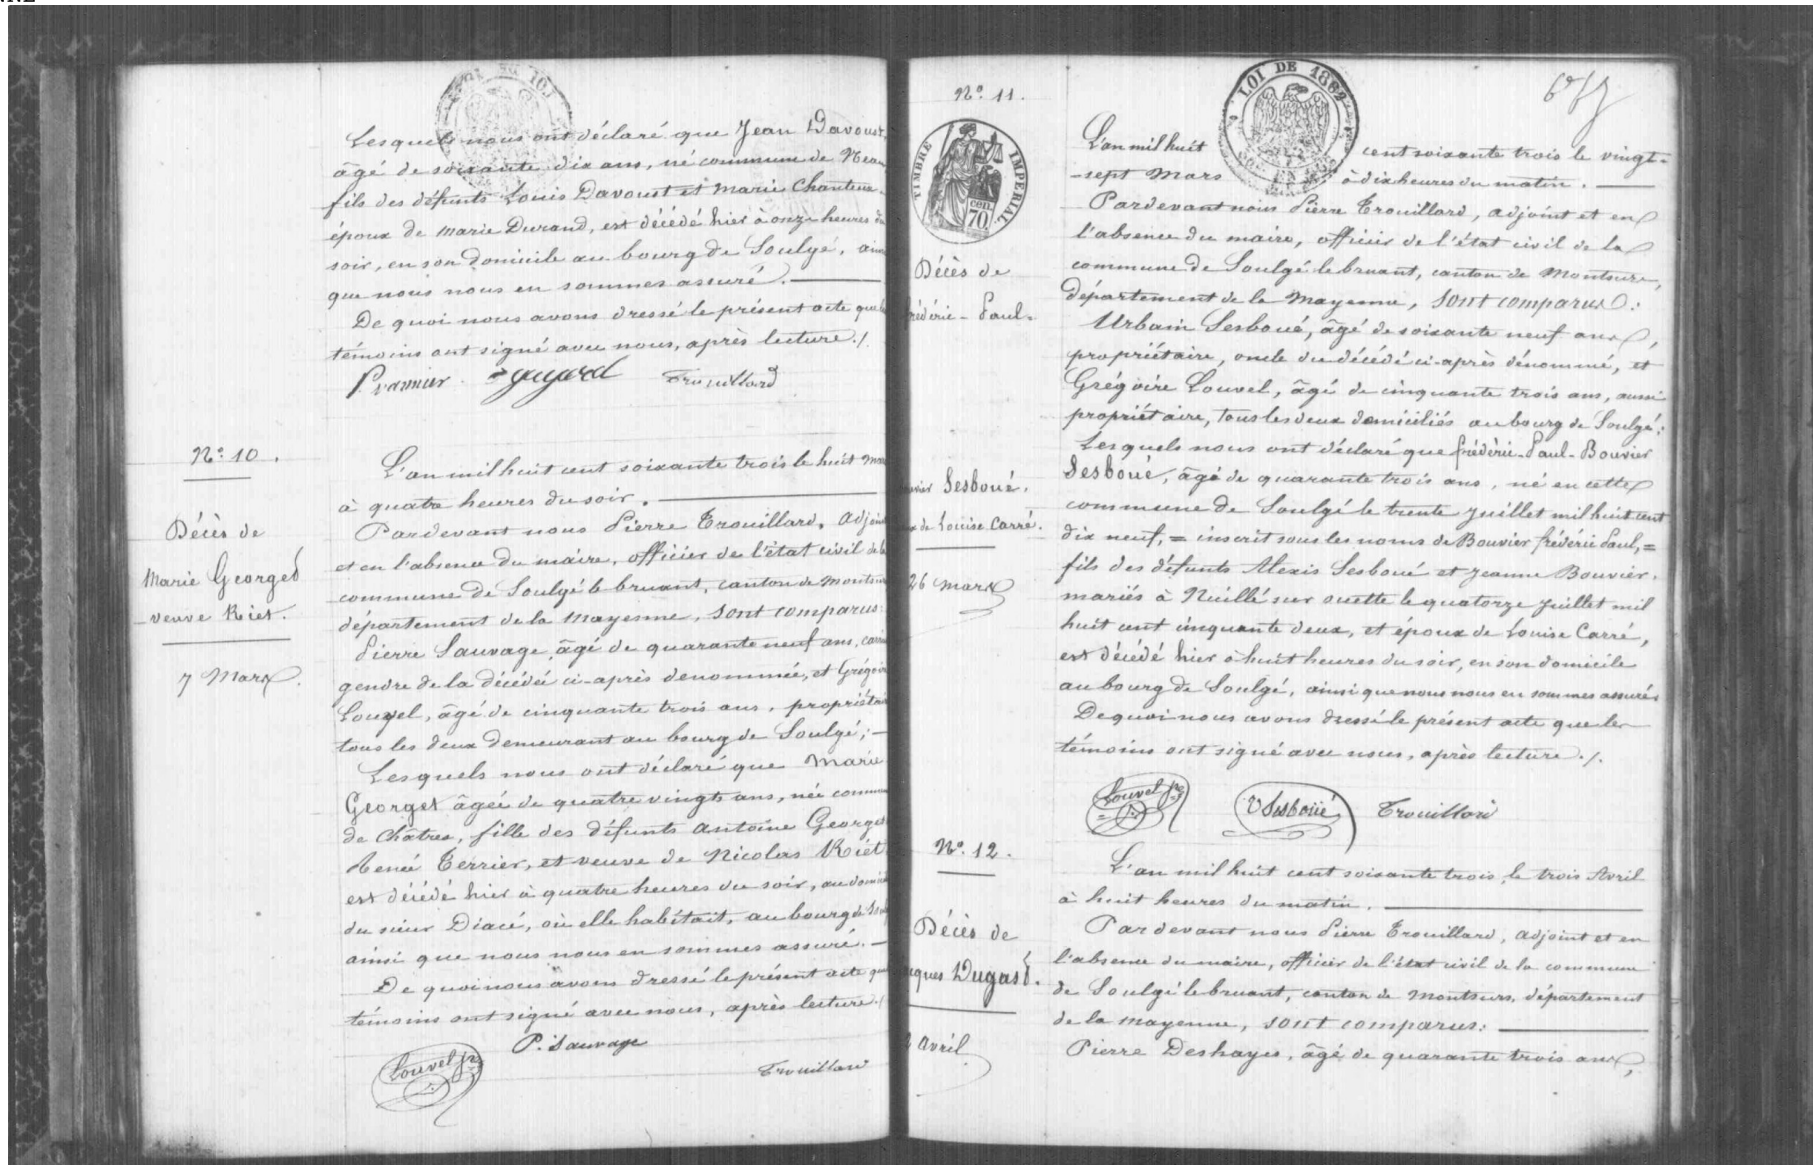 Lesquels nous ont déclaré que Jean Davoust,
âgé de soixante dix ans, né commune de Neau
fils des défunts Louis Davoust et Marie Chanteux
époux de Marie Durand, est décédé hier à onze heures du
soir, en son domicile au bourg de Soulgé, ainsi
que nous nous en sommes assuré.
De quoi nous avons dressé le présent acte que les
témoins ont signé avec nous, après lecture ./.
Trouillard
N° 10.
Décès de
Marie Georget
veuve Riet.
7 Mars.
L'an mil huit cent soixante trois le huit mars
à quatre heures du soir.
Pardevant nous Pierre Trouillard, adjoint
et en l'absence du maire, officier de l'état civil de la
commune de Soulgé le bruant, canton de Montsurs
département de la Mayenne, sont comparus:
Pierre Sauvage, âgé de quarante neuf ans,
gendre de la décédée ci-après dénommée, et Grégoire
Louvel, âgé de cinquante trois ans, propriétaire
tous les deux demeurant au bourg de Soulgé;
Lesquels nous ont déclaré que Marie
Georget âgée de quatre vingts ans, née commune
de Châtres, fille des défunts Antoine Georget
Renée Terrier, et veuve de Nicolas Riet
est décédé hier à quatre heures du soir, au domicile
du sieur Diacé, où elle habitait, au bourg de
ainsi que nous nous en sommes assuré.
De quoi nous avons dressé le présent acte que
témoins ont signé avec nous, après lecture ./
Louvel P. Sauvage
Trouillard
LOI DE 1862
N° 11.
TIMBRE IMPÉRIAL
70 cen.
Décès de
frédéric-Paul-
Sesboué,
de Louise Carré.
26 mars
L'an mil huit cent soixante trois le vingt-
-sept Mars à dix heures du matin.
Pardevant nous Pierre Trouillard, adjoint et en
l'absence du maire, officier de l'état civil de la
commune de Soulgé le bruant, canton de Montsurs,
département de la Mayenne, sont comparus:
Urbain Sesboué, âgé de soixante neuf ans,
propriétaire, oncle du décédé ci-après dénommé, et
Grégoire Louvel, âgé de cinquante trois ans, aussi
propriétaire, tous les deux domiciliés au bourg de Soulgé;
Lesquels nous ont déclaré que frédéric-Paul-Bouvier
Sesboué, âgé de quarante trois ans, né en cette
commune de Soulgé le trente juillet mil huit cent
dix neuf, = inscrit sous les noms de Bouvier fréderic Paul, =
fils des défunts Alexis Sesboué et Jeanne Bouvier,
mariés à Nuillé sur ouette le quatorze juillet mil
huit cent cinquante deux, et époux de Louise Carré,
est décédé hier à huit heures du soir, en son domicile
au bourg de Soulgé, ainsi que nous nous en sommes assurés
De quoi nous avons dressé le présent acte que les
témoins ont signé avec nous, après lecture ./.
Louvel V Sesboüé Trouillard
N° 12.
Décès de
Dugast.
avril
L'an mil huit cent soixante trois, le trois Avril
à huit heures du matin.
Pardevant nous Pierre Trouillard, adjoint et en
l'absence du maire, officier de l'état civil de la commune
de Soulgé le bruant, canton de Montsurs, département
de la Mayenne, sont comparus:
Pierre Deshayes, âgé de quarante trois ans,